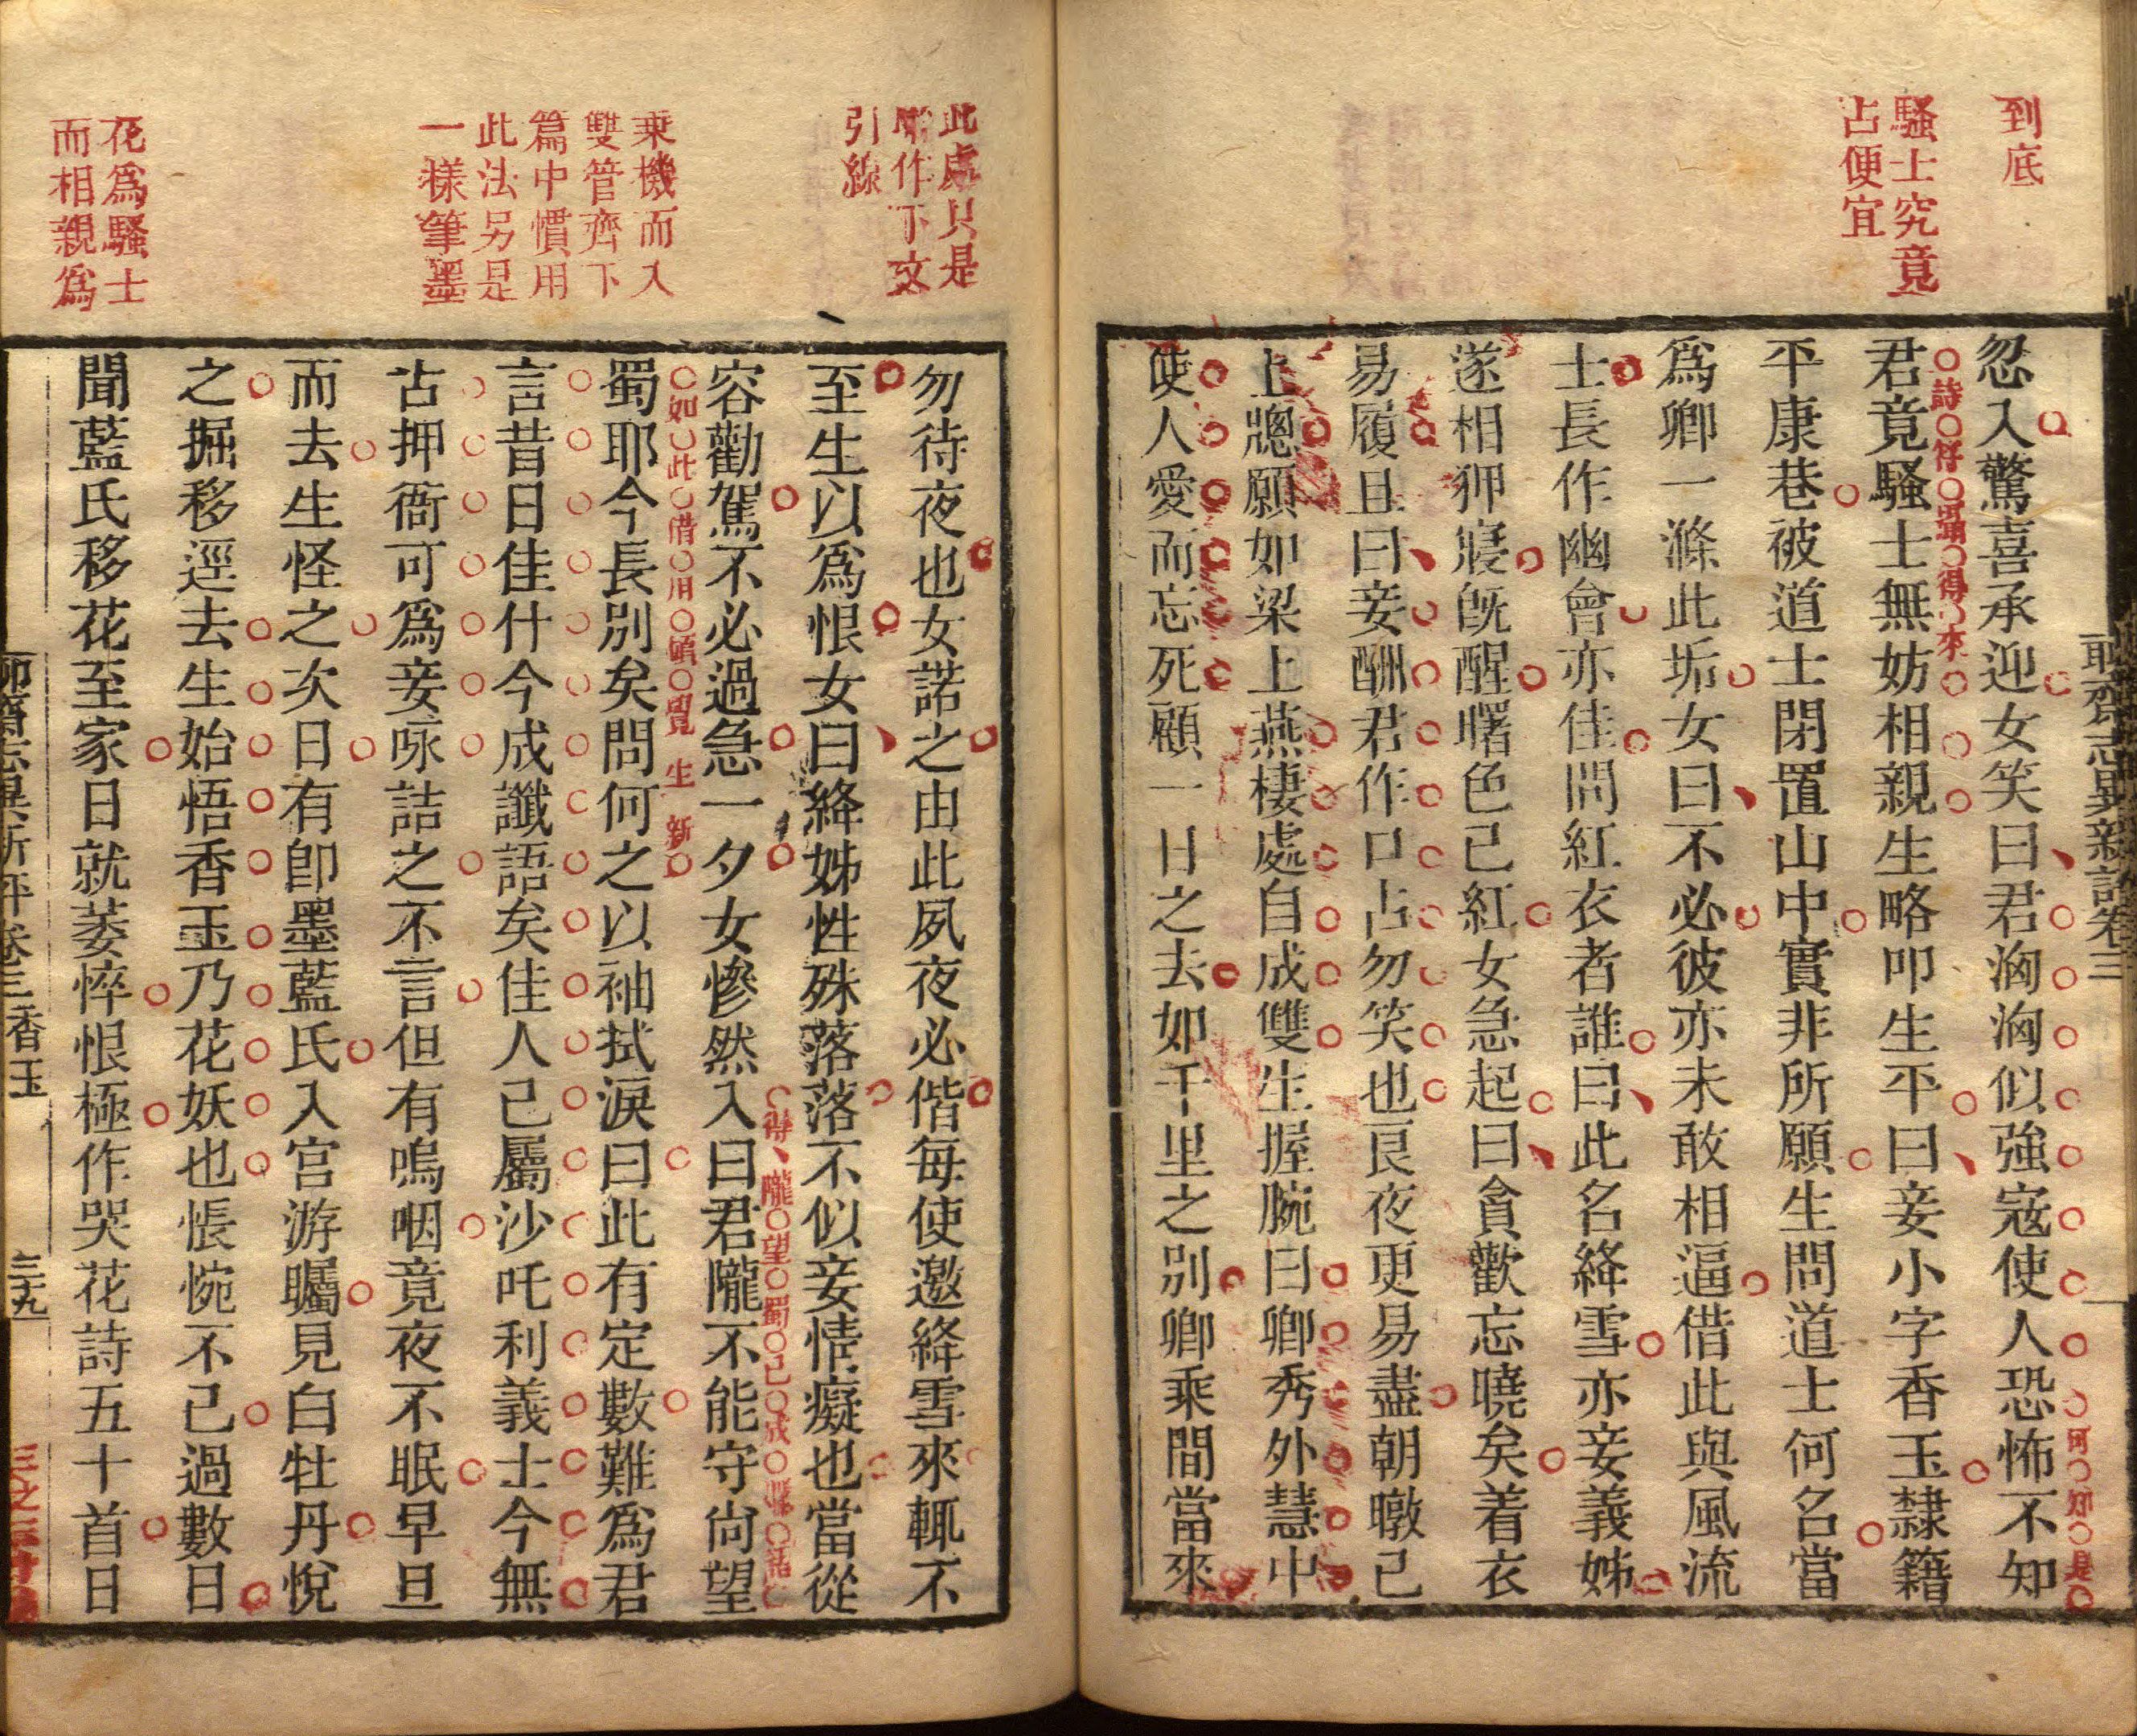 到底
騷士究竟
占便宜
聊齋志異新評卷三
忽入驚喜承迎女笑曰君洶洶似強寇使人恐怖不知
君竟騷士無妨相親生略叩生平曰妾小字香玉隸籍
平康巷被道士閉置山中實非所願生問道士何名當
爲卿一滌此垢女曰不必彼亦未敢相逼借此與風流
士長作幽會亦佳問紅衣者誰曰此名絳雪亦妾義姊
遂相狎寢旣醒曙色已紅女急起曰貪歡忘曉矣着衣
易履且曰妾酬君作口占勿笑也良夜更易盡朝暾已
上牕願如梁上燕棲處自成雙生握腕曰卿秀外慧中
使人愛而忘死顧一日之去如千里之別卿乘間當來
此處只是
作下文
引線
乘機而入
雙管齊下
篇中慣用
此法另是
一樣筆墨
花爲騷士
而相親爲
勿待夜也女諾之由此夙夜必偕每使邀絳雪來輒不
至生以爲恨女曰絳姊性殊落落不似妾情癡也當從
容勸駕不必過急一夕女慘然入曰君隴不能守尙望
得隴望蜀已成話
蜀耶今長別矣問何之以袖拭淚曰此有定數難爲君
如此借用頗覺生新
言昔日佳什今成讖語矣佳人已屬沙吒利義士今無
古押衙可爲妾咏詰之不言但有嗚咽竟夜不眠早旦
而去生怪之次日有卽墨藍氏入宫游矚見白牡丹悅
之掘移逕去生始悟香玉乃花妖也悵惋不已過數日
聞藍氏移花至家日就萎悴恨極作哭花詩五十首日
聊齋志異新評卷三香玉 三九